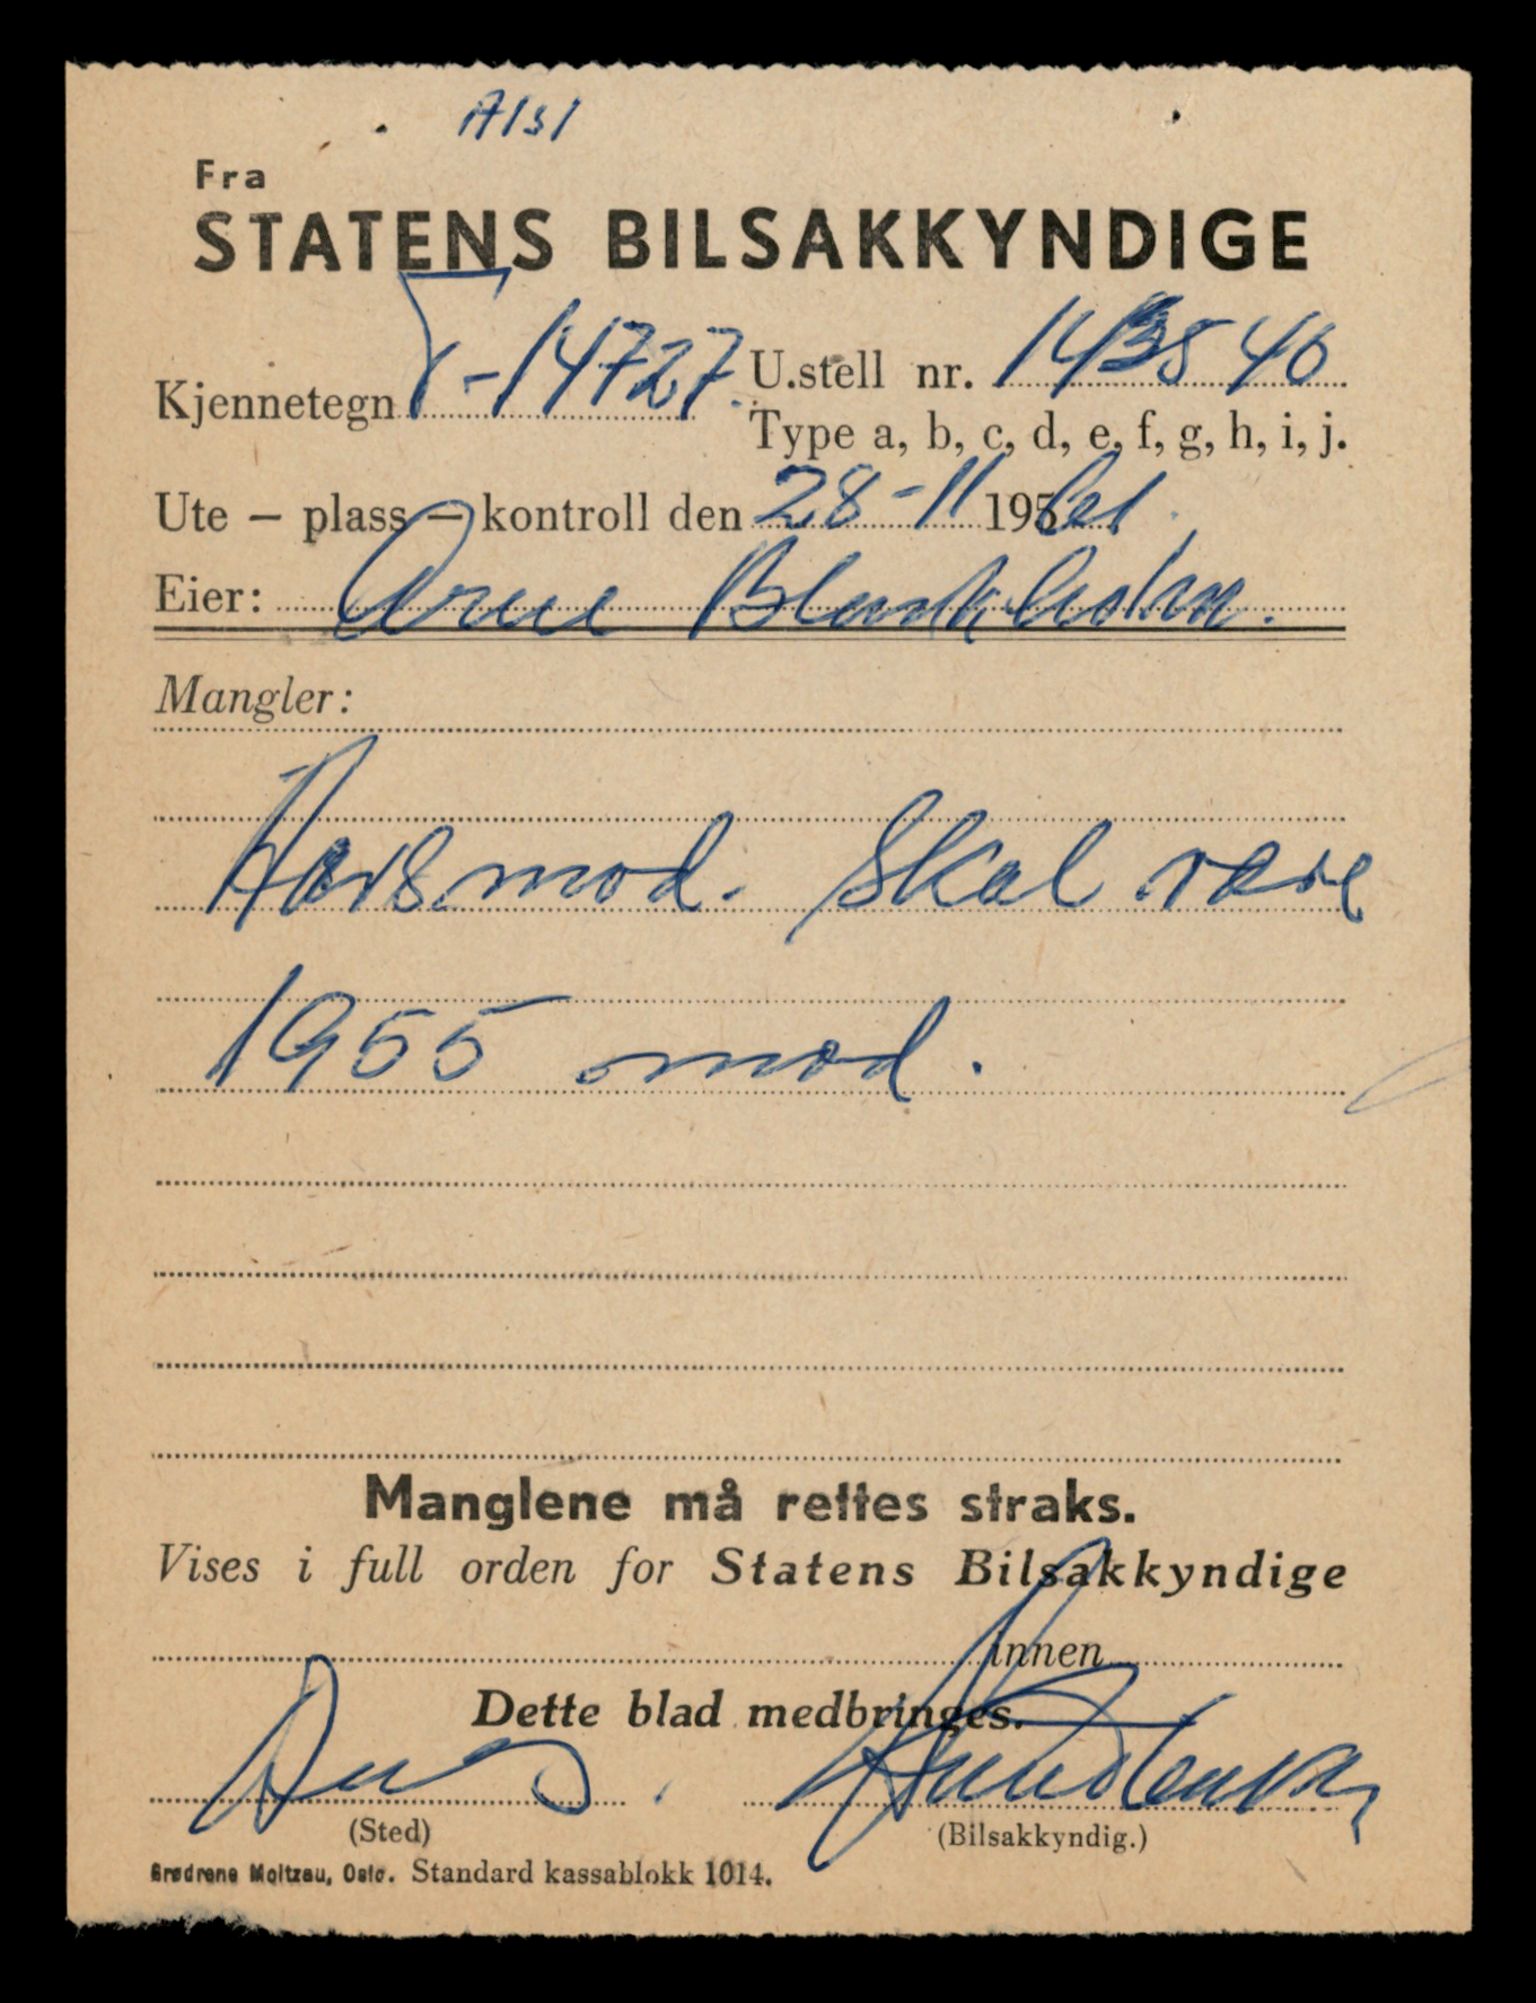 A131
Fra
STATENS BILSAKKYNDIGE
Kjennetegn T-14727. U.stell nr. 1435 40
Type a, b, c, d, e, f, g, h, i, j.
Ute – plass – kontroll den 28-11 1961.
Eier: Arne
Mangler:
Årsmod. Skal være
1955 mod.
Manglene må rettes straks.
Vises i full orden for Statens Bilsakkyndige
innen
Dette blad medbringes.
(Sted) (Bilsakkyndig.)
Brødrene Moltzau, Oslo. Standard kassablokk 1014.